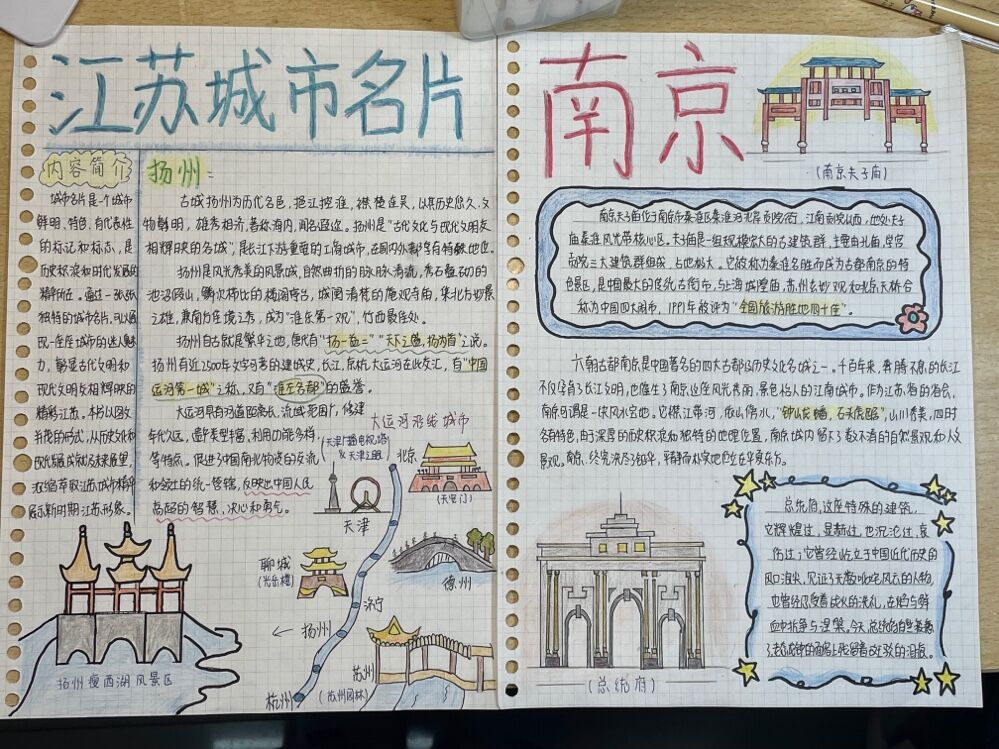 江苏城市名片
内容简介
城市名片是一个城市
鲜明、特色、有代表性
的标记和标志，是
历史积淀和时代发展的
精华所在。通过一张张
独特的城市名片，可以展
现一座座城市的迷人魅
力，彰显古代文明和
现代文明交相辉映的
精彩江苏。本书以图文
并茂的形式，从历史文化和
现代发展成就及未来展望，
浓缩萃取江苏城市精华
展示新时期江苏形象。
扬州：
古城扬州为历代名邑，挹江控淮，襟楚连吴，以其历史悠久、文
物鲜明，雄秀相济，喜称海内，闻名遐迩。扬州是"古代文化与现代文明交
相辉映的名城"，是长江下游重要的工商城市，在国内外都享有特殊地位。
扬州是风光秀美的风景城，自然曲折的脉脉清流，秀石叠砌的
池沼假山，鳞次栉比的楼阁亭台，城阙清梵的庵观寺庙，集北方如景
之雄，兼南方佳境之秀，成为"淮左第一观"，竹西最佳处。
扬州自古就是繁华之地，唐代有"扬一益二""天下之盛，扬为首"之说。
扬州自近2500年文字可考的建城史，长江、京杭大运河在此交汇，有"中国
运河第一城"之称，又有"淮左名都"的盛誉。
大运河具有河道距离长、流域范围广、修建
年代久远、遗产类型丰富、利用功能多样
等特点。促进了中国南北物资的交流
和领土的统一管辖，反映出中国人民
高超的智慧、决心和勇气。
大运河沿线城市
(天津广播电视塔
&天津之眼)
北京
(天安门)
天津
聊城
(光岳楼)
德州
济宁
扬州
苏州
(苏州园林)
杭州
扬州瘦西湖风景区
南京
(南京夫子庙)
南京夫子庙位于南京市秦淮区秦淮河北岸贡院街，江南贡院以西，地处夫子
庙秦淮风光带核心区。夫子庙是一组规模宏大的古建筑群，主要由孔庙、学宫
贡院三大建筑群组成，占地极大。它被称为秦淮名胜而成为古都南京的特
色景区，是中国最大的传统古街市，与上海城隍庙、苏州玄妙观和北京天桥合
称为中国四大闹市，1991年被评为"全国旅游胜地四十佳"。
六朝古都南京是中国著名的四大古都及历史文化名城之一。千百年来，奔腾不息的长江
不仅孕育了长江文明，也催生了南京这座风光秀丽、景色怡人的江南城市。作为江苏省的省会，
南京可谓是一块风水宝地。它襟江带河，依山傍水，"钟山龙蟠，石头虎踞"，山川秀美，四时
各有特色。由于深厚的历史积淀和独特的地理位置，南京城内留下了数不清的自然景观和人文
景观。南京，终究洗尽了铅华，平静而朴实地伫立在华夏东方。
(总统府)
总统府，这座特殊的建筑，
它辉煌过，显赫过，也沉沦过，哀
伤过；它曾经屹立于中国近代历史的
风口浪尖，见证了无数叱咤风云的人物，
也曾经忍受着战火的洗礼，在焰与鲜
血中抗争与涅槃。今天，总统府